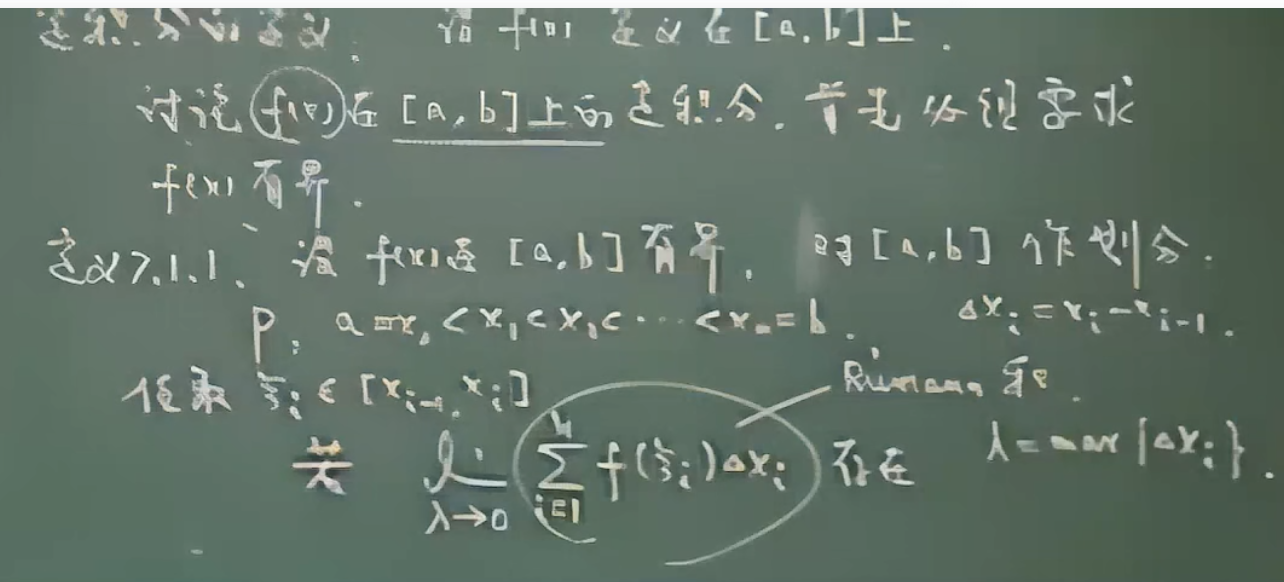 定积分的定义 设 f(x) 定义在 [a, b] 上.
讨论 f(x) 在 [a, b] 上的定积分. 首先必须要求
f(x) 有界.
定义7.1.1. 设 f(x) 在 [a, b] 有界. 对 [a, b] 作划分.
P: a = x₀ < x₁ < x₂ < ⋯ < xₙ = b. Δxᵢ = xᵢ − xᵢ₋₁.
任取 ξᵢ ∈ [xᵢ₋₁, xᵢ] Riemann 和.
若 lim_{λ→0} ∑_{i=1}^{n} f(ξᵢ)Δxᵢ 存在 λ = max {Δxᵢ}.